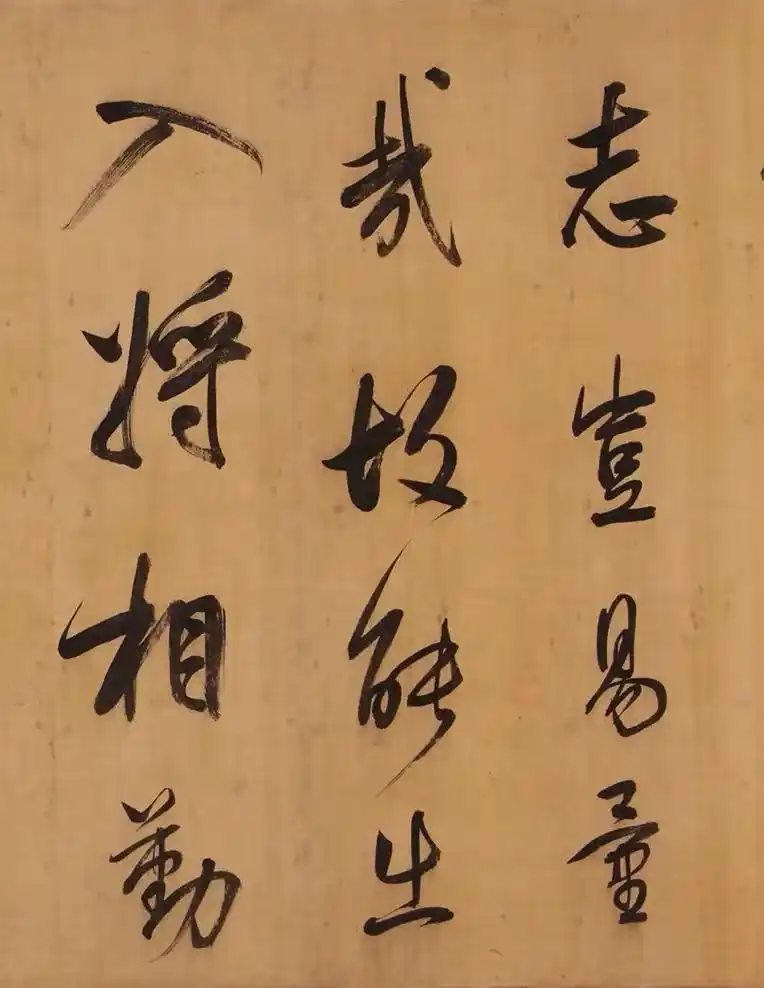 志豈易量
哉故能出
入將相勤